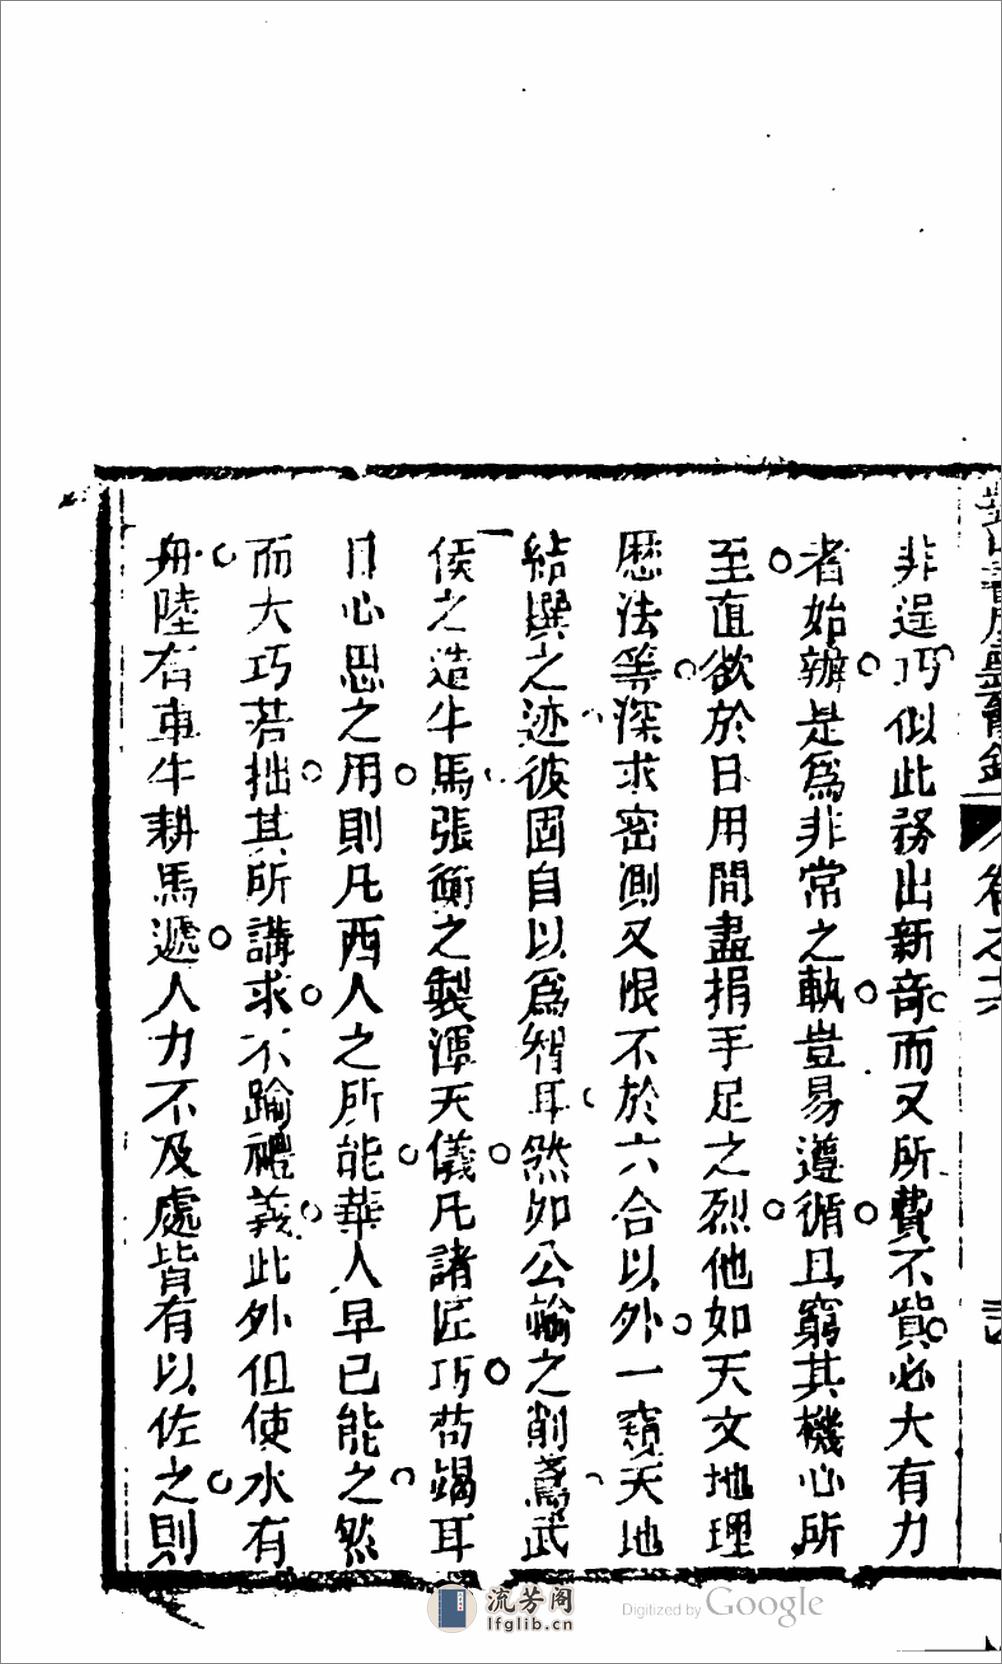 非逞巧似此務出新奇而又所費不貲必大有力
者始辦是爲非常之軌豈易遵循且窮其機心所
至直欲於日用間盡捐手足之烈他如天文地理
厯法等深求密測又恨不於六合以外一窺天地
結撰之迹彼固自以爲智耳然如公輸之削鳶武
侯之造牛馬張衡之製渾天儀凡諸匠巧苟竭耳
目心思之用則凡西人之所能華人早已能之然
而大巧若拙其所講求不踰禮義此外但使水有
舟陸有車牛耕馬遞人力不及處皆有以佐之則
卷之六
流芳阁
lfglib.cn
Digitized by Google